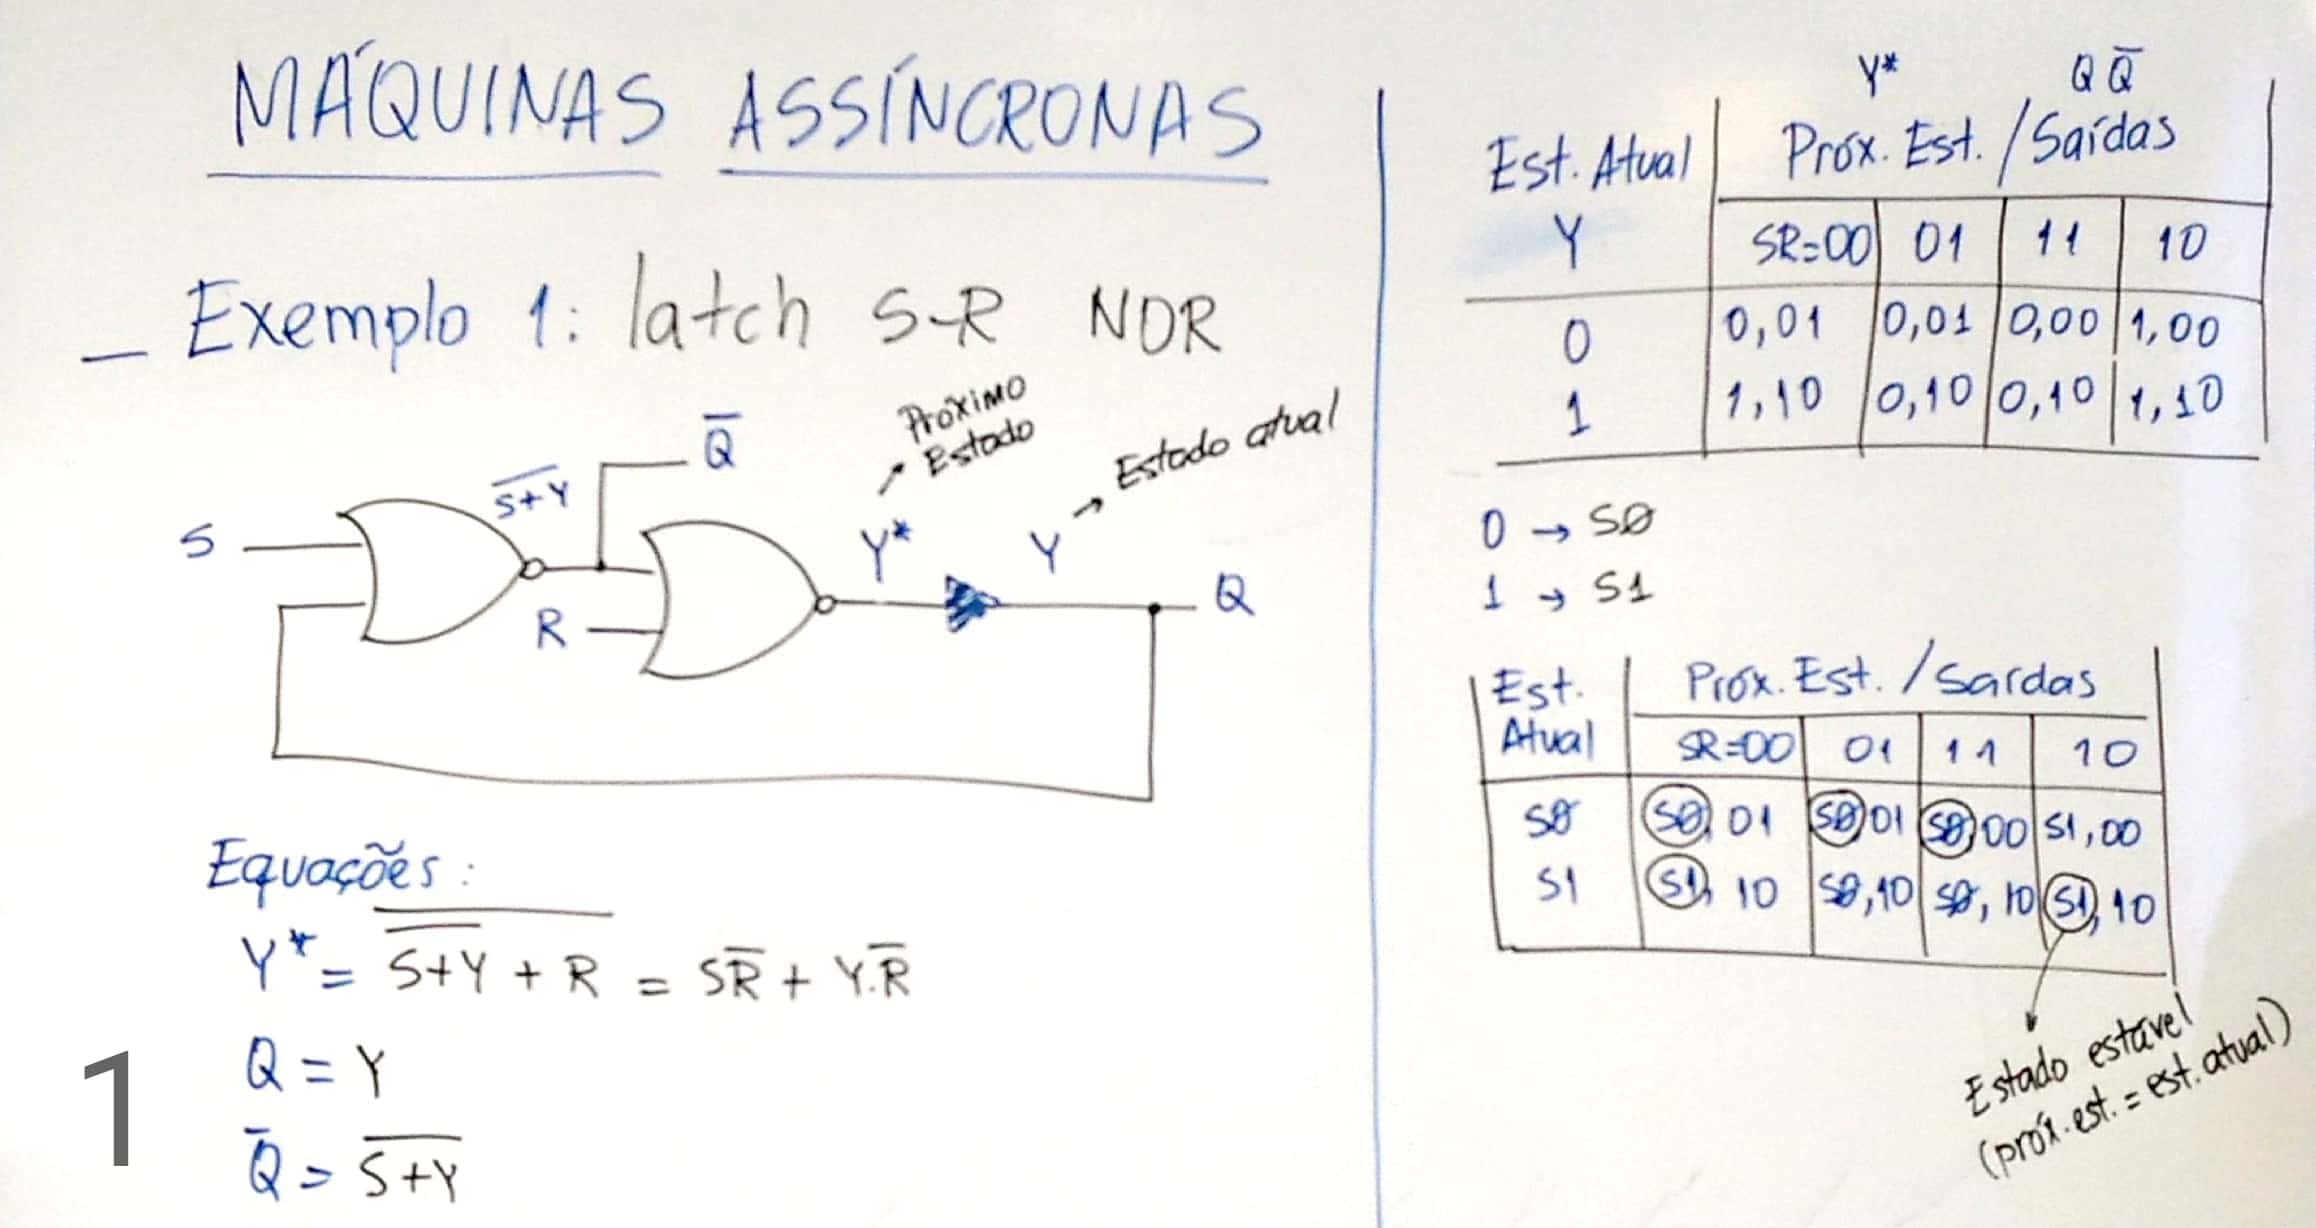 MÁQUINAS ASSÍNCRONAS
Exemplo 1: latch S-R NOR
Próximo
Estado
Estado atual
Q̅
S̅+̅Y̅
Y*
Y
S
R
Q
Equações:
Y* = \overline{\overline{S+Y} + R} = SR̅ + Y.R̅
Q = Y
Q̅ = \overline{S+Y}
1
Y* Q Q̅
Est. Atual Próx. Est. / Saídas
Y SR=00 01 11 10
0 0,01 0,01 0,00 1,00
1 1,10 0,10 0,10 1,10
0 → SØ
1 → S1
Est. Próx. Est. / Saídas
Atual SR=00 01 11 10
SØ SØ, 01 SØ, 01 SØ, 00 S1, 00
S1 S1, 10 SØ, 10 SØ, 10 S1, 10
Estado estável
(próx. est. = est. atual)